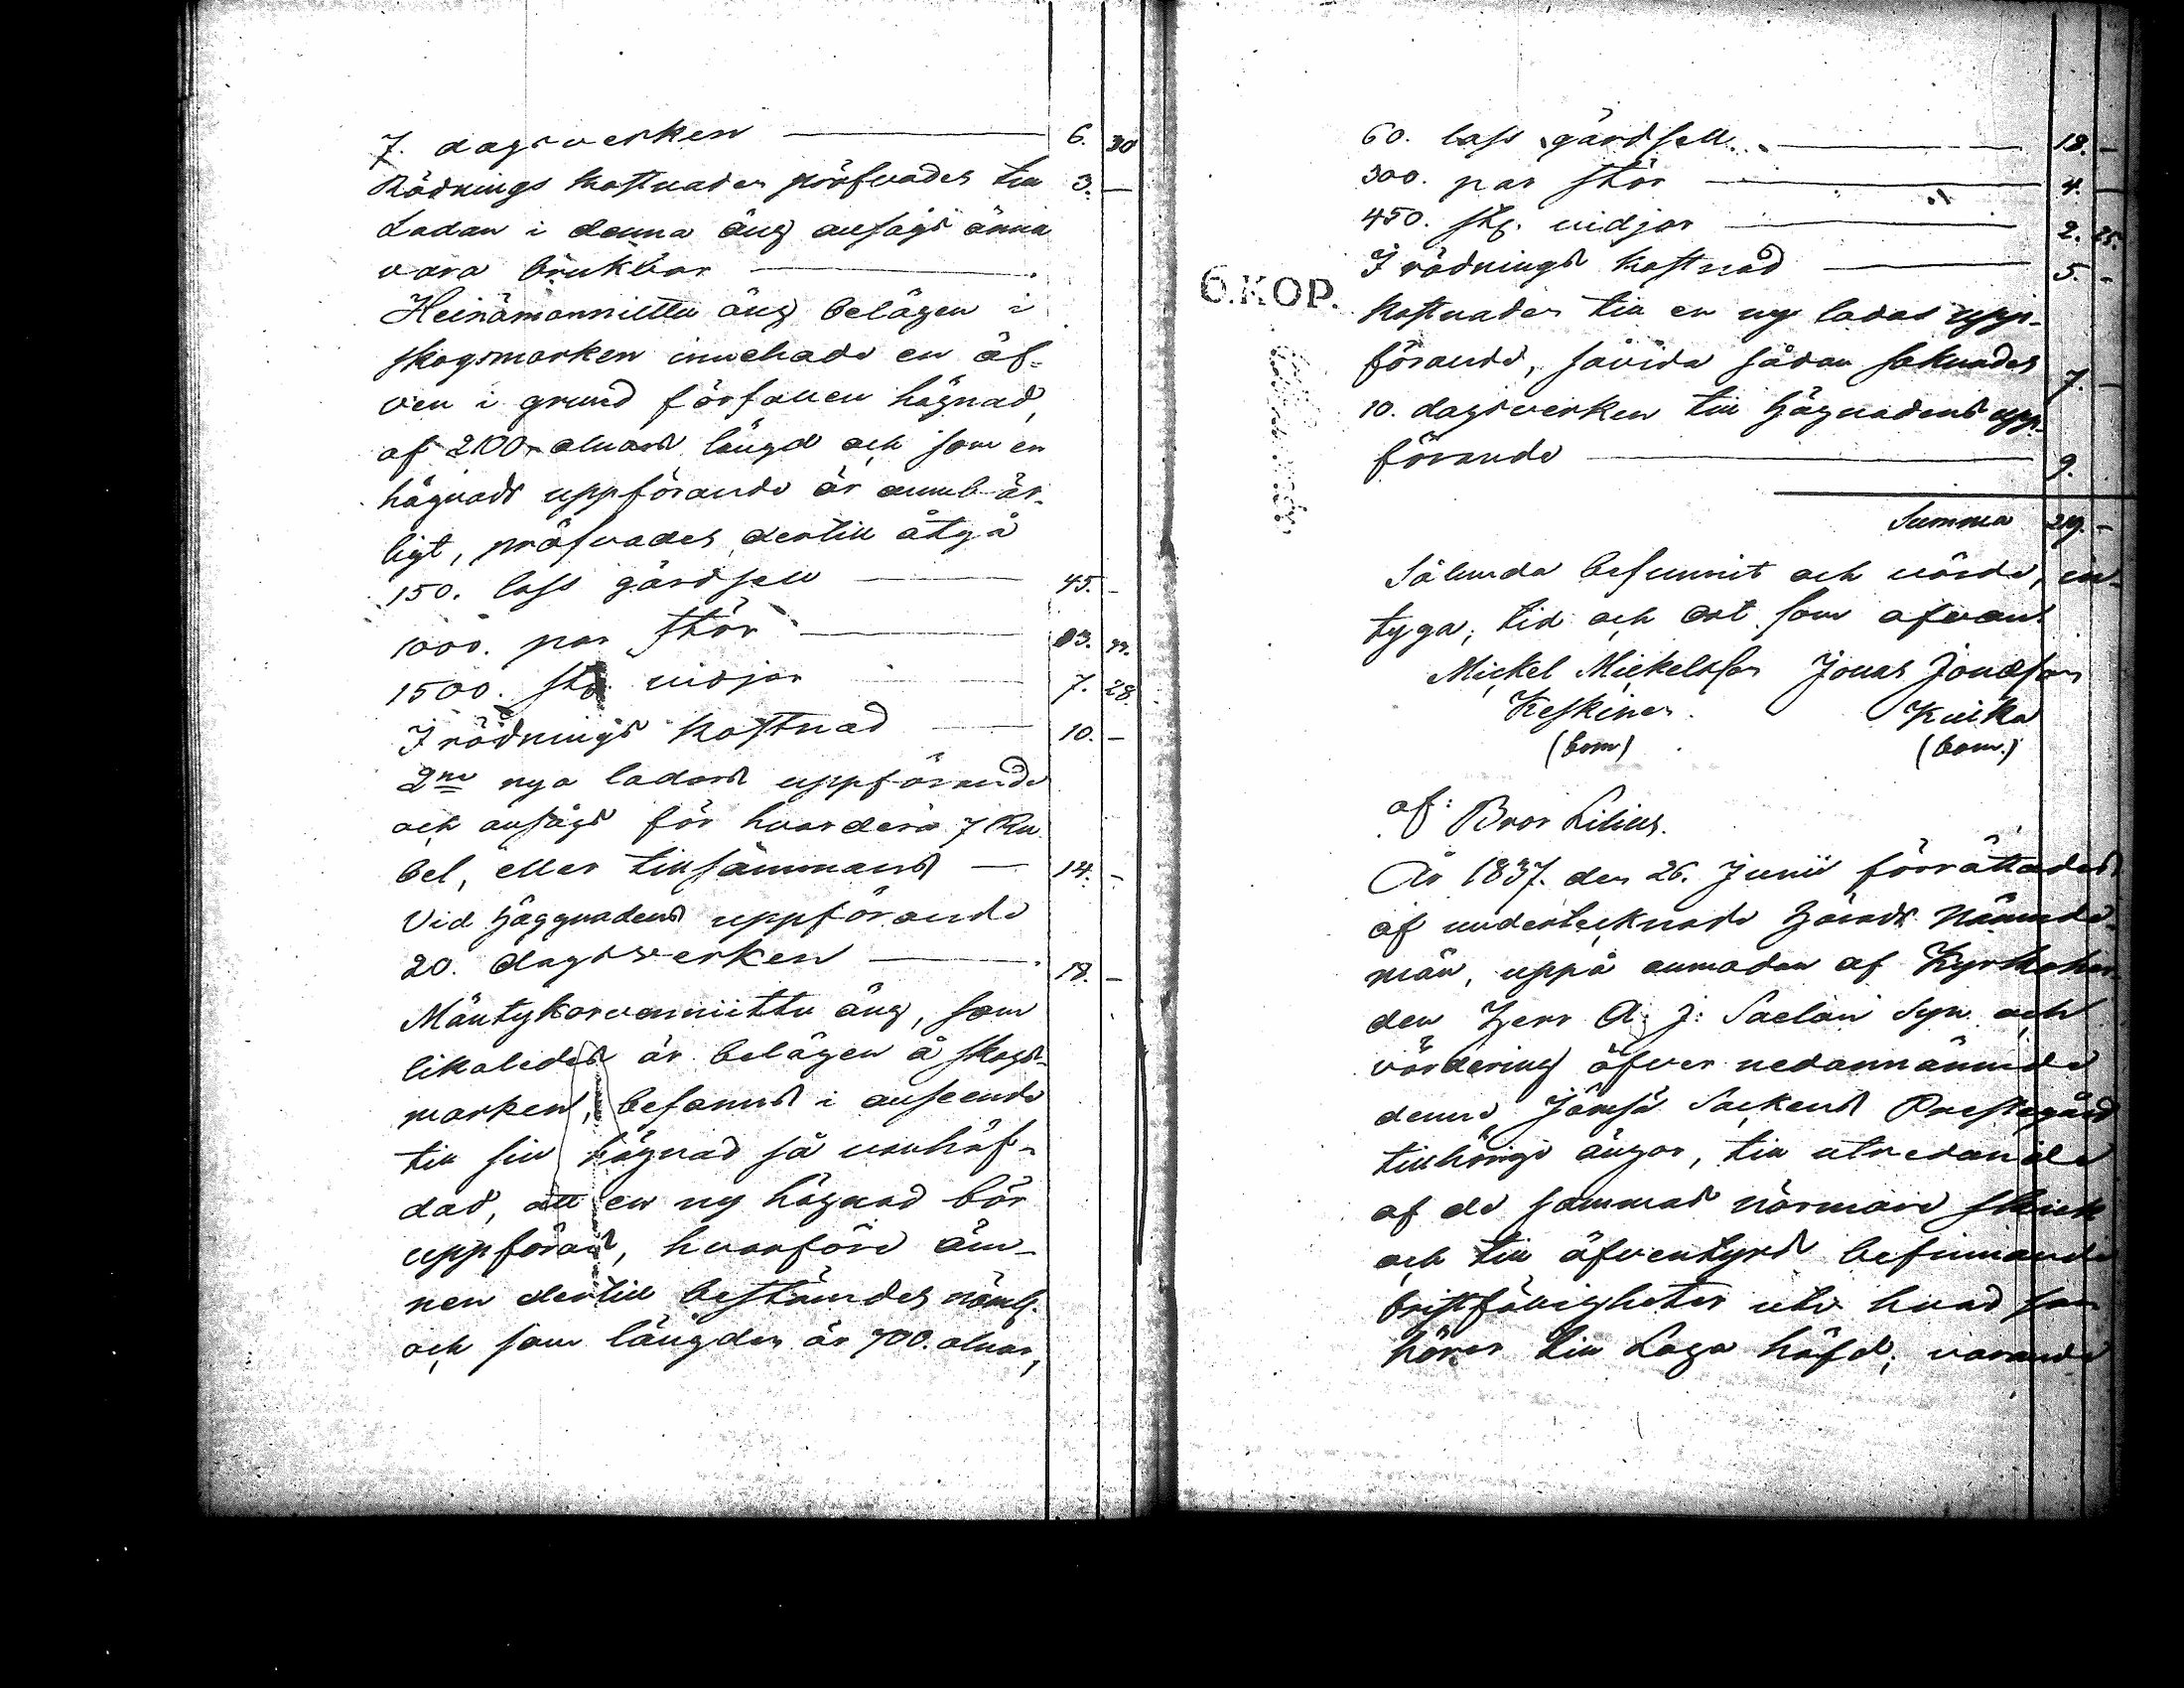 7. dagsverken — 6. 30
Rödnings kostnaden pröfvades till 3. —
Ladan i denna äng ansågs ännu
vara brukbar —
Heinämanniittu äng belägen i
skogsmarken innehade en äf-
ven i grund förfallen hägnad,
af 2100 alnars längd och som en
hägnads uppförande är oumbär-
ligt, pröfvades dertill åtgå
150. lass gärdsell — 45. —
1000. par stör —
1500. st. vidjor — 7. 28.
I rödnings kostnad — 10. —
2ne nya ladors uppförande
och ansågs för hvardera 7 Ru-
bel, eller tillsammans — 14. —
Vid häggnadens uppförande
20. dagsverken — 18. —
Mäntykorvenniittu äng, som
likaledes är belägen å skogs-
marken, befanns i anseende
till sin hägnad så vanhäf-
dad, att en ny hägnad bör
uppföras, hvarföre äm-
nen dertill bestämdes näml.
och som längden är 700. alnar,
60. lass gärdsell — 18. —
300. par stör — 4. —
450. st. vidjor — 2. 25.
I rödnings kostnad — 5. —
6.KOP.
Kostnaden till en ny ladas upp-
förande, såvida sådan saknades 7. —
10. dagsverken till hägnadens upp-
förande — 9.
Summa
Sålunda befunnit och värde, in-
tyga; tid och ort som ofvan
Mickel Mickelsson Jonas Jonasson
Keskinen Kuikka
(bom.) (bom.)
af: Bror Lilius.
År 1837. den 26. Junii förrättades
af undertecknade Härads Nämnde-
män, uppå anmodan af Kyrkoher-
den Herr A. J: Saelan Syn och
värdering öfver nedannämnde
denne Jämsä Sockens Prestegård
tillhörige ängar, till utredande
af de sammas närmare skick
och till äfventyrs befinnande
bristfälligheter utv hvad som
hörer till Laga häfd; varande